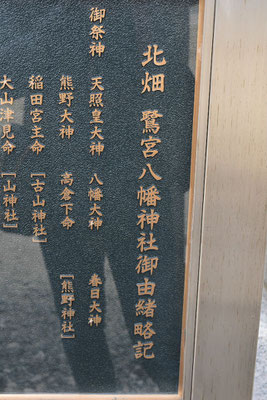 北畑 鷺宮八幡神社御由緒略記
御祭神 天照皇大神 八幡大神 春日大神
熊野大神 高倉下命 [熊野神社]
稲田宮主命 [古山神社]
大山津見命 [山神社]